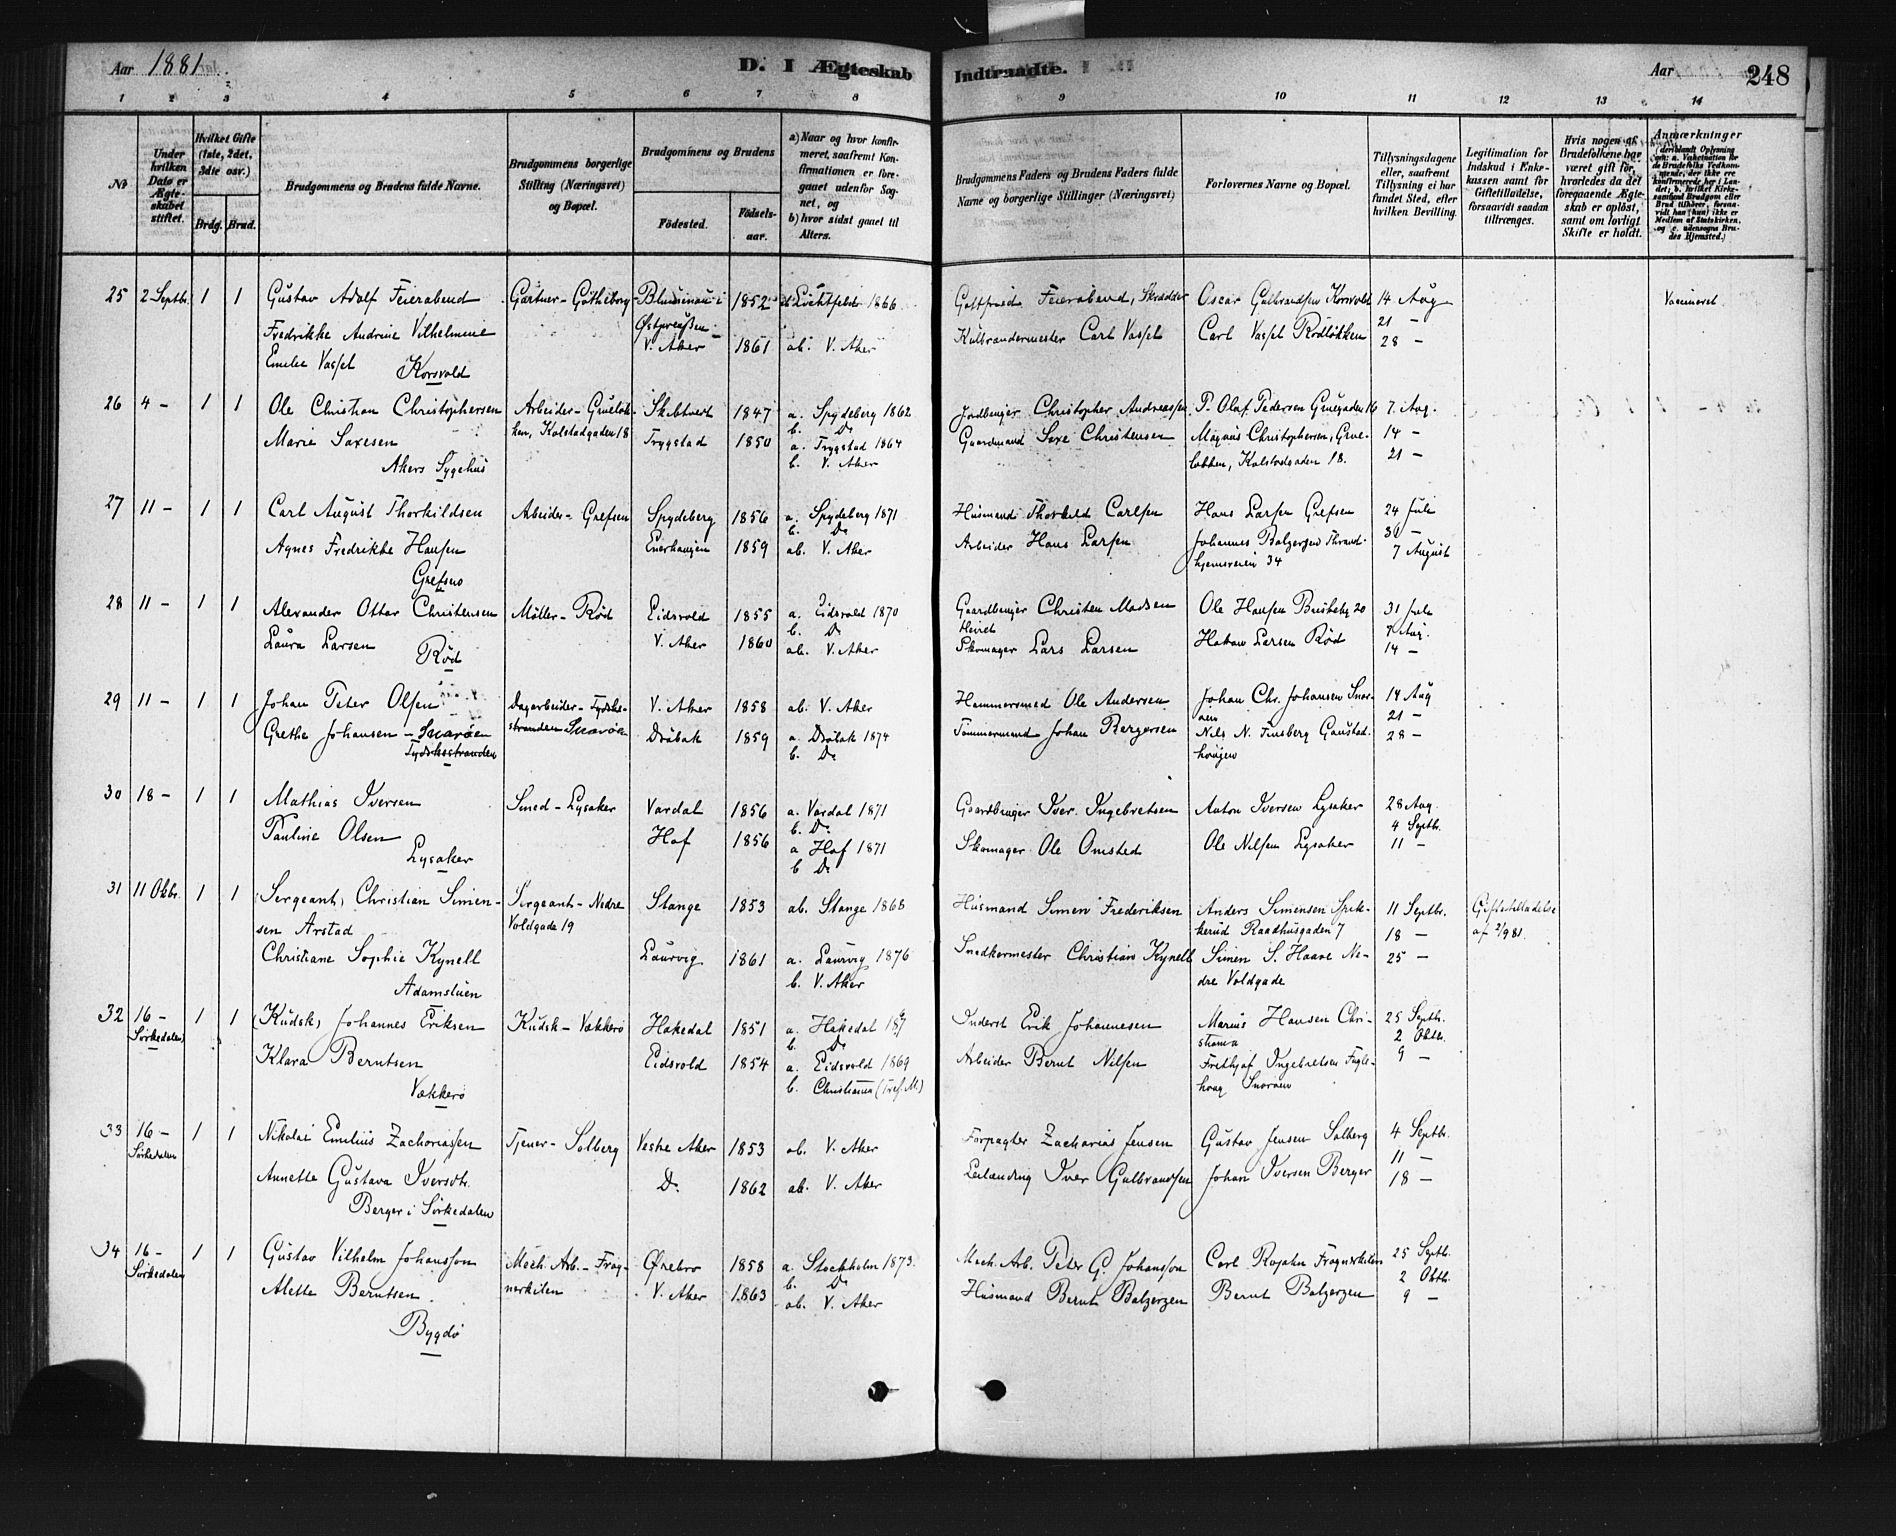 Aar 1881. D. I Ægteskab Indtraadte. Aar 248
1 2 3 4 5 6 7 8 9 10 11 12 13 14
№
Under hvilken Dato er Ægteskabet stiftet.
Hvilket Gifte (1ste, 2det, 3die osv.)
Brdg. Brud.
Brudgommens og Brudens fulde Navne.
Brudgommens borgerlige Stilling (Næringsvei) og Bopæl.
Brudgommens og Brudens
Födested. Födsels-aar.
a) Naar og hvor konfirmeret, saafremt Konfirmationen er foregaaet udenfor Sognet, og
b) hvor sidst gaaet til Alters.
Brudgommens Faders og Brudens Faders fulde Navne og borgerlige Stillinger (Næringsvei)
Forlovernes Navne og Bopæl.
Tillysningsdagene eller, saafremt Tillysning ei har fundet Sted, efter hvilken Bevilling.
Legitimation for Indskud i Enkekassen samt for Giftetilladelse, forsaavidt saadan tiltrænges.
Hvis nogen af Brudefolkene har været gift för, hvorledes da det foregaaende Ægteskab er oplöst, samt om lovligt Skifte er holdt.
Anmærkninger
25 2 Septb. 1 1 Gustav Adolf Feierabend Gartner - Götheborg 1852 Lichtfelde 1866 Gottfried Feierabend, Skrædder Oscar Gulbrandsen Korsvold 14 Aug Vaccineret
Fredrikke Andrine Vilhelmine Østpreussen V. Aker 1861 ab. V. Aker Kulbrændermester Carl Vassel Carl Vassel Rodeløkken 21 -
Emilie Vassel Korsvold 28 -
26 4 - 1 1 Ole Christian Christophersen Arbeider - Grueløk- Skibtvedt 1847 a. Spydeberg 1862 Jordbruger Christopher Andreassen P. Olaf Pedersen Gruegaden 16 7. Aug.
ken, Kolstadgaden 18 b. Do
Marie Saxesen Trygstad 1850 a. Trygstad 1864 Gaardmand Saxe Christensen Magnus Christophersen, Grue- 14 -
Akers Sygehus b. V. Aker løkken, Kolstadgaden 18. 21 -
27 11 - 1 1 Carl August Thorkildsen Arbeider - Grefsen Spydeberg 1856 a. Spydeberg 1871 Husmand Thorkild Carlsen Hans Larsen Grefsen 24 Juli
b. Do
Agnes Fredrikke Hansen Enerhaugen 1859 ab. V. Aker Arbeider Hans Larsen Johannes Balzersen Thrond- 31 -
Grefsen hjemsveien 34 7 August
28 11 - 1 1 Alexander Ottar Christensen Møller - Rød Eidsvold 1855 a. Eidsvold 1870 Gaardbruger Christen Madsen Ole Hansen 20 31 Juli
b. Do
Laura Larsen V. Aker 1860 ab. V. Aker Skomager Lars Larsen Hakon Larsen Rød 7 Aug.
Rød 14 -
29 11 - 1 1 Johan Peter Olsen Dagarbeider - Tydske- V. Aker 1858 ab. V. Aker Hammersmed Ole Andersen Johan Chr. Johansen Snar- 14 Aug
stranden Snarøen øen 21 -
Grethe Johansen - Snarøen Drøbak 1859 a. Drøbak 1874 Tømmermand Johan Bergersen Nils N. Finsberg Gaustad- 28 -
Tydskestranden b. Do haugen
30 18 - 1 1 Mathias Iversen Smed - Lysaker Vardal 1856 a. Vardal 1871 Gaardbruger Iver Ingebretsen Anton Iversen Lysaker 28 Aug.
b. Do 4 Septb.
Pauline Olsen Hof 1856 a Hof 1871 Skomager Ole Omsted Ole Nilsen Lysaker 11 -
Lysaker b Do
31 11 Oktbr. 1 1 Sergeant, Christian Simen- Sergeant - Nedre Stange 1853 ab. Stange 1868 Husmand Simen Frederiksen Anders Simensen Spik- 11 Septb. Giftetilladelse
sen Arstad Voldgade 19 kerud Raadhusgaden 7 18 - af 2/9 81.
Christiane Sophie Kynell Laurvig 1861 a. Laurvig 1876 Snedkermester Christian Kynell Simen S. Haave Ne- 25 -
Adamstuen b. V. Aker dre Voldgade
32 16 - 1 1 (Kudsk) Johannes Eriksen Kudsk - Vækkerø Hakedal 1851 a. Hakedal Inderst Erik Johannesen Marius Hansen Chri- 25 Septb.
Sørkedalen b. Do stiania 2 Oktb.
Klara Berntsen Eidsvold 1854 a. Eidsvold 1869 Arbeider Bernt Nilsen Frithjof Ingebretsen Fugle- 9 -
Vækkerø b. Christiania (Tref. M) haug Snarøen
33 16 - 1 1 Nikolai Emilius Zachariassen Tjener - Solberg Vestre Aker 1853 ab. V. Aker Forpagter Zacharias Jensen Gustav Jensen Solberg 4 Septb.
Sørkedalen 11 -
Annette Gustava Iversdtr. Do 1862 ab. V. Aker Leilænding Iver Gulbrandsen Johan Iversen Berger 18 -
Berger i Sørkedalen
34 16 - 1 1 Gustav Vilhelm Johansson Mech. Arb. - Frog- Ørebro 1858 a. Stockholm 1873. Mech. Arb. Peter G. Johansson Carl Frognerkilen 25 Septb.
Sørkedalen nerkilen b. Do 2 Oktb.
Alette Berntsen V. Aker 1863 ab. V. Aker Husmand Bernt Balzersen Bernt Balzersen 9 -
Bygdø